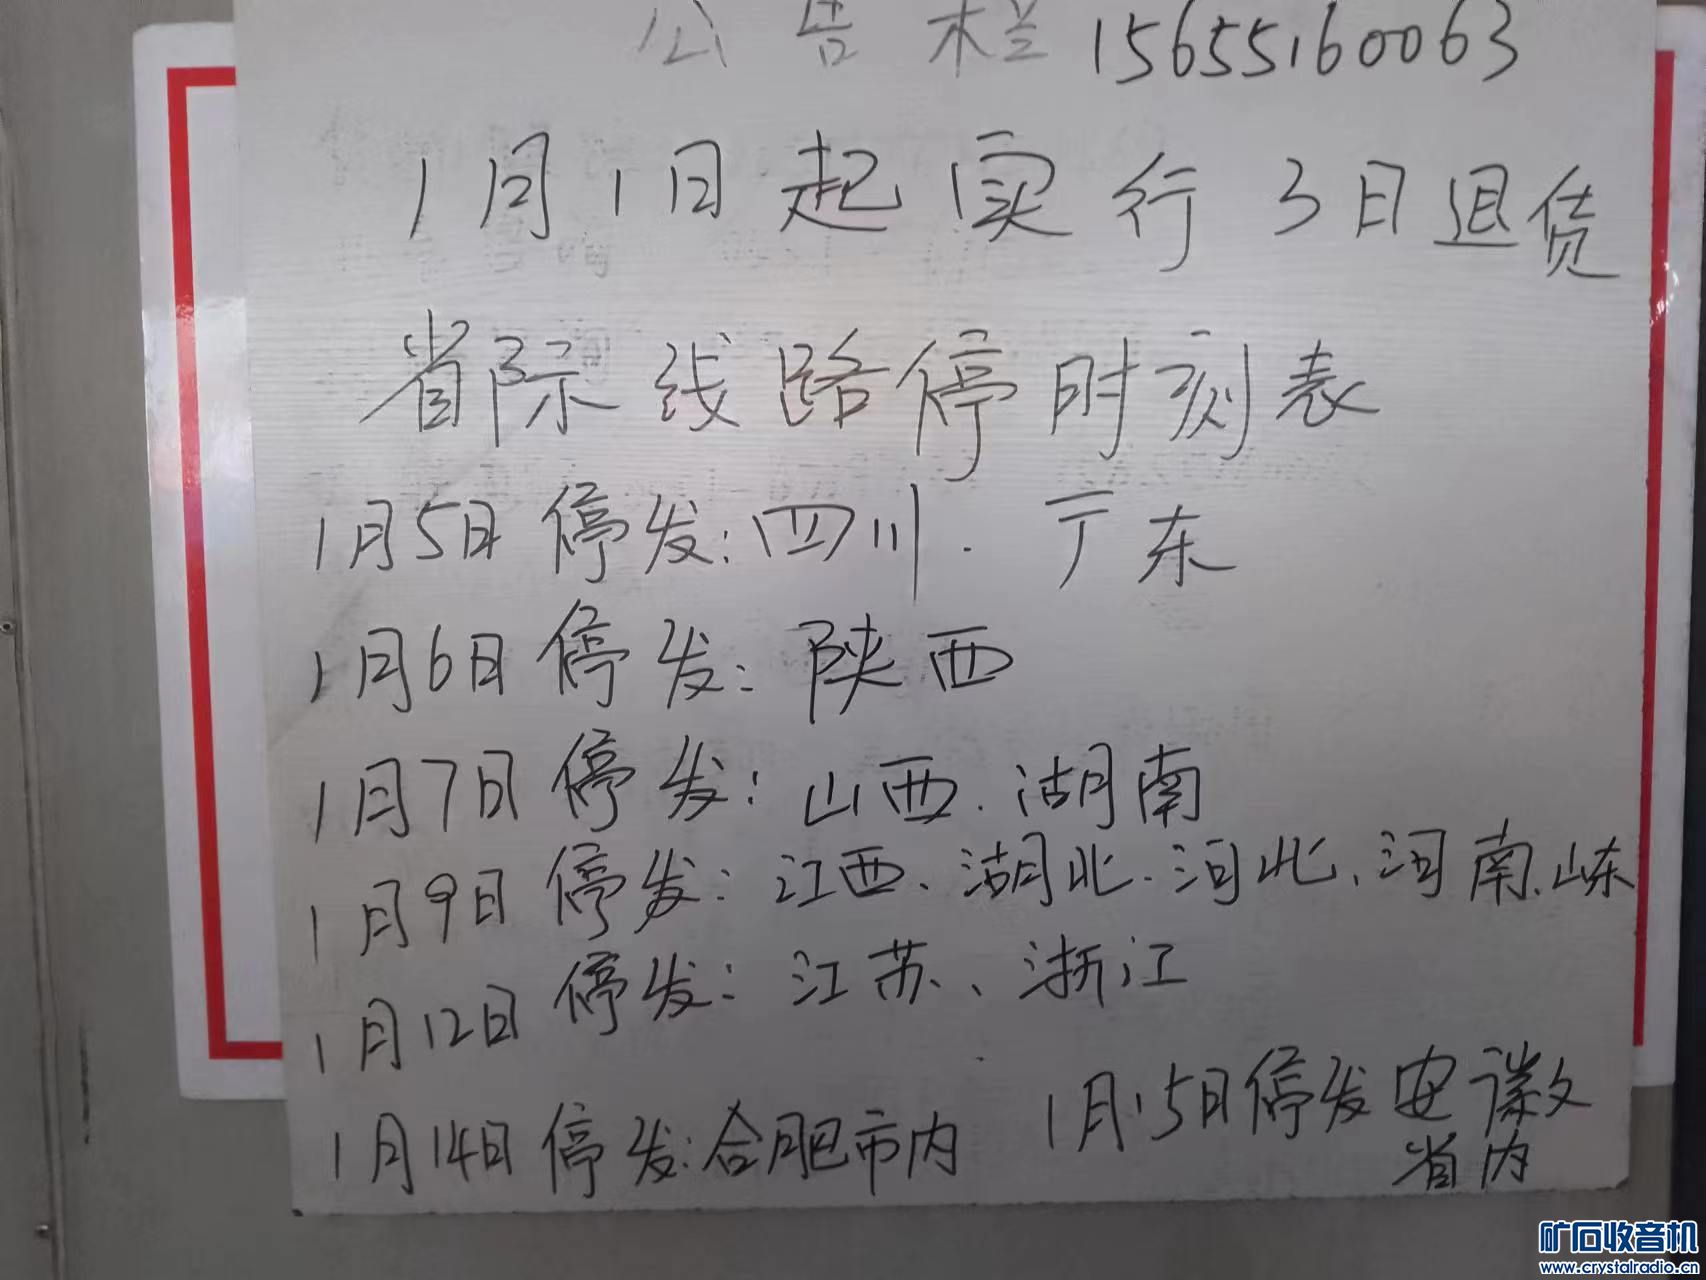 公告栏 15655160063
1月1日起实行3日退货
省际线路停时刻表
1月5日停发:四川.广东
1月6日停发:陕西
1月7日停发:山西.湖南
1月9日停发:江西、湖北.河北、河南.山东
1月12日停发:江苏、浙江
1月14日停发:合肥市内
1月15日停发安徽
省内
矿石收音机
www.crystalradio.cn